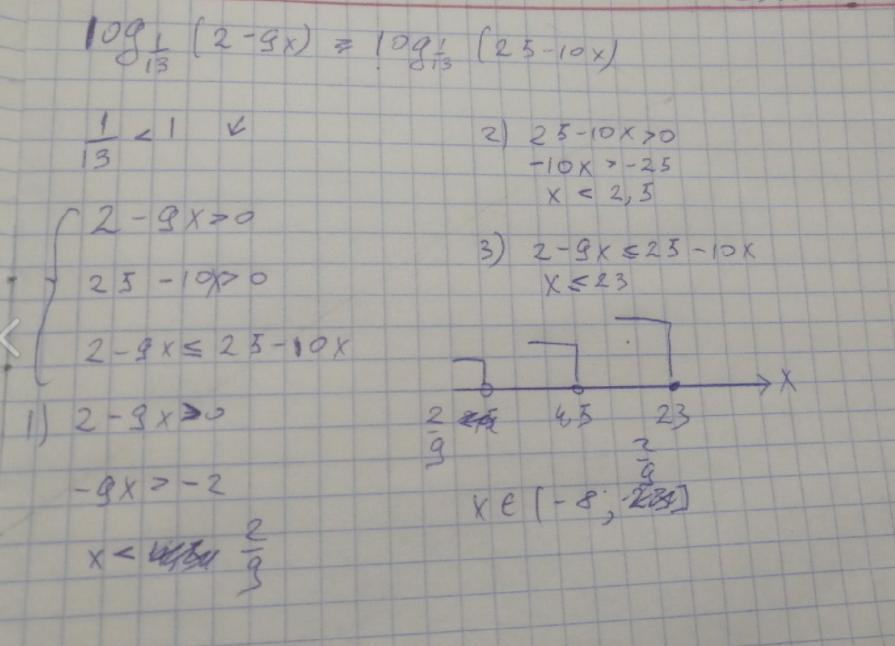 log 1/13 (2-9x) ≥ log 1/13 (25-10x)
1/13 < 1 ↙
{ 2-9x>0
25-10x>0
2-9x≤25-10x
1) 2-9x>0
-9x>-2
x< 2/9
2) 25-10x>0
-10x>-25
x<2,5
3) 2-9x≤25-10x
x≤23
x
2/9 23
2/9
x∈(-8;